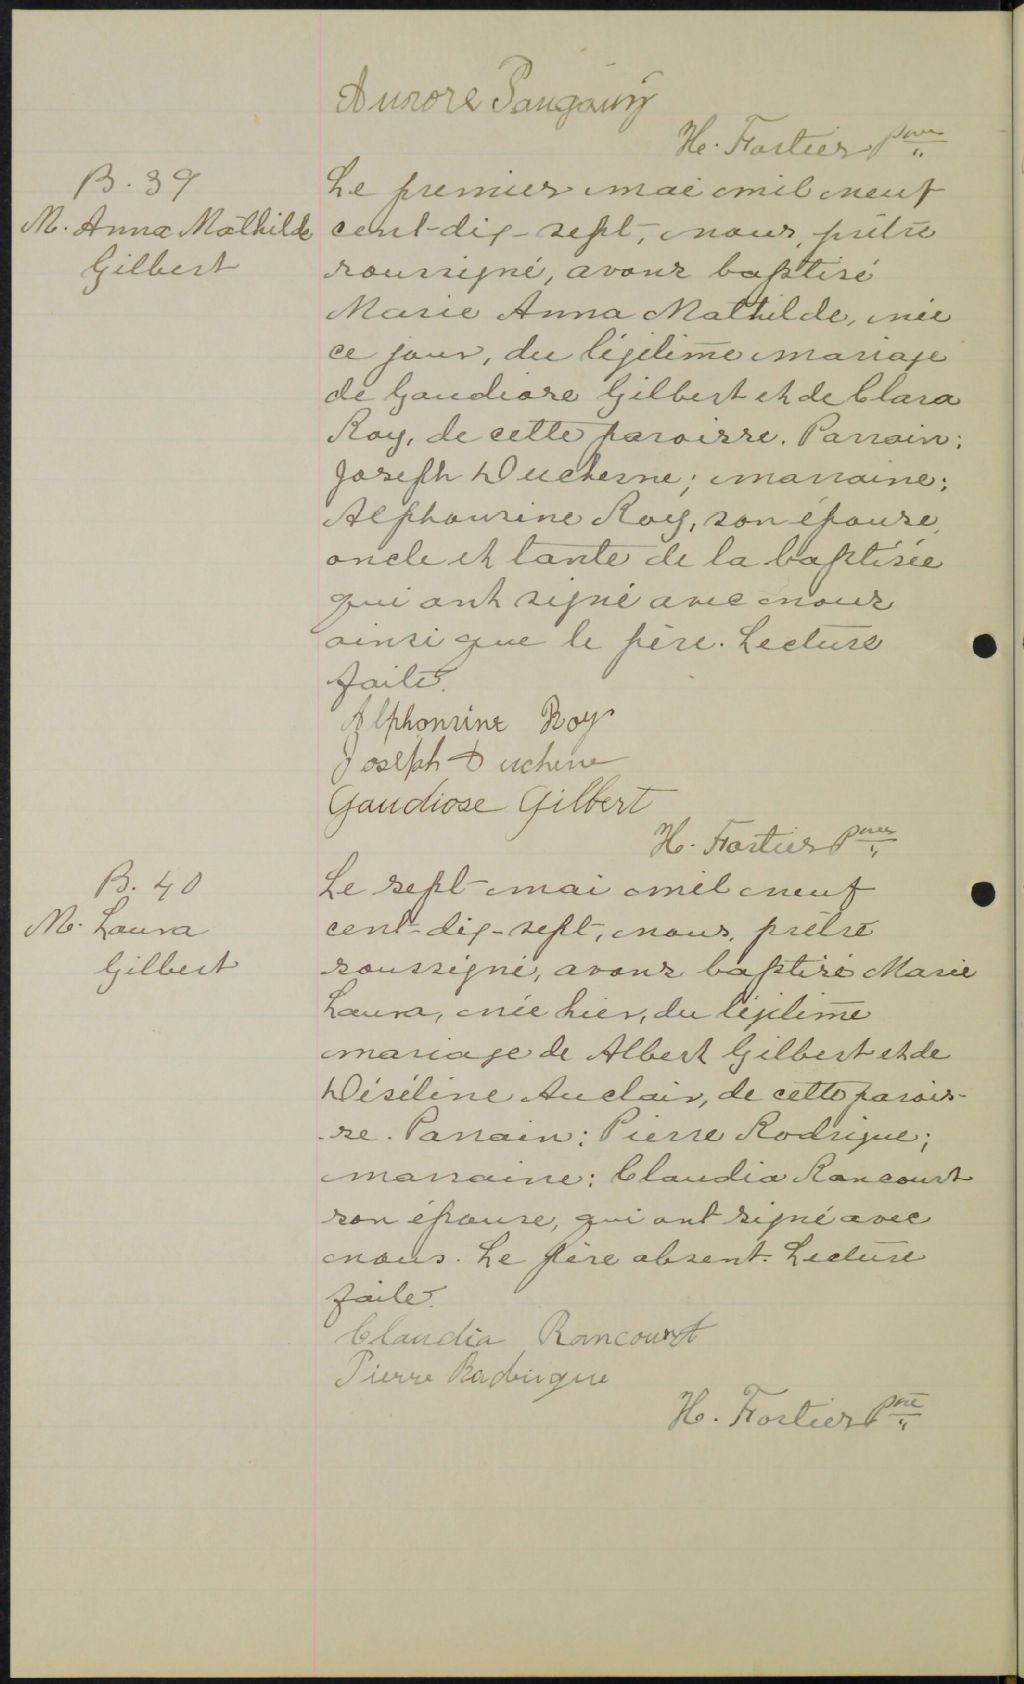 Aurore
H. Fortier Ptre
B. 39
M. Anna Mathilde
Gilbert
Le premier mai mil neuf
cent-dix-sept, nous, prêtre
soussigné, avons baptisé
Marie Anna Mathilde, née
ce jour, du légitime mariage
de Gaudiose Gilbert et de Clara
Roy, de cette paroisse. Parrain:
Joseph Duchesne; marraine:
Alphonsine Roy, son épouse,
oncle et tante de la baptisée
qui ont signé avec nous
ainsi que le père. Lecture
faite.
Alphonsine Roy
Joseph Duchene
Gaudiose Gilbert
H. Fortier Ptre
B. 40
M. Laura
Gilbert
Le sept mai mil neuf
cent-dix-sept, nous, prêtre
soussigné, avons baptisé Marie
Laura, née hier, du légitime
mariage de Albert Gilbert et de
Déséline Auclair, de cette parois-
-se. Parrain: Pierre Rodrigue;
marraine: Claudia Rancourt
son épouse, qui ont signé avec
nous. Le père absent. Lecture
faite.
Claudia Rancourt
Pierre Rodrigue
H. Fortier Ptre